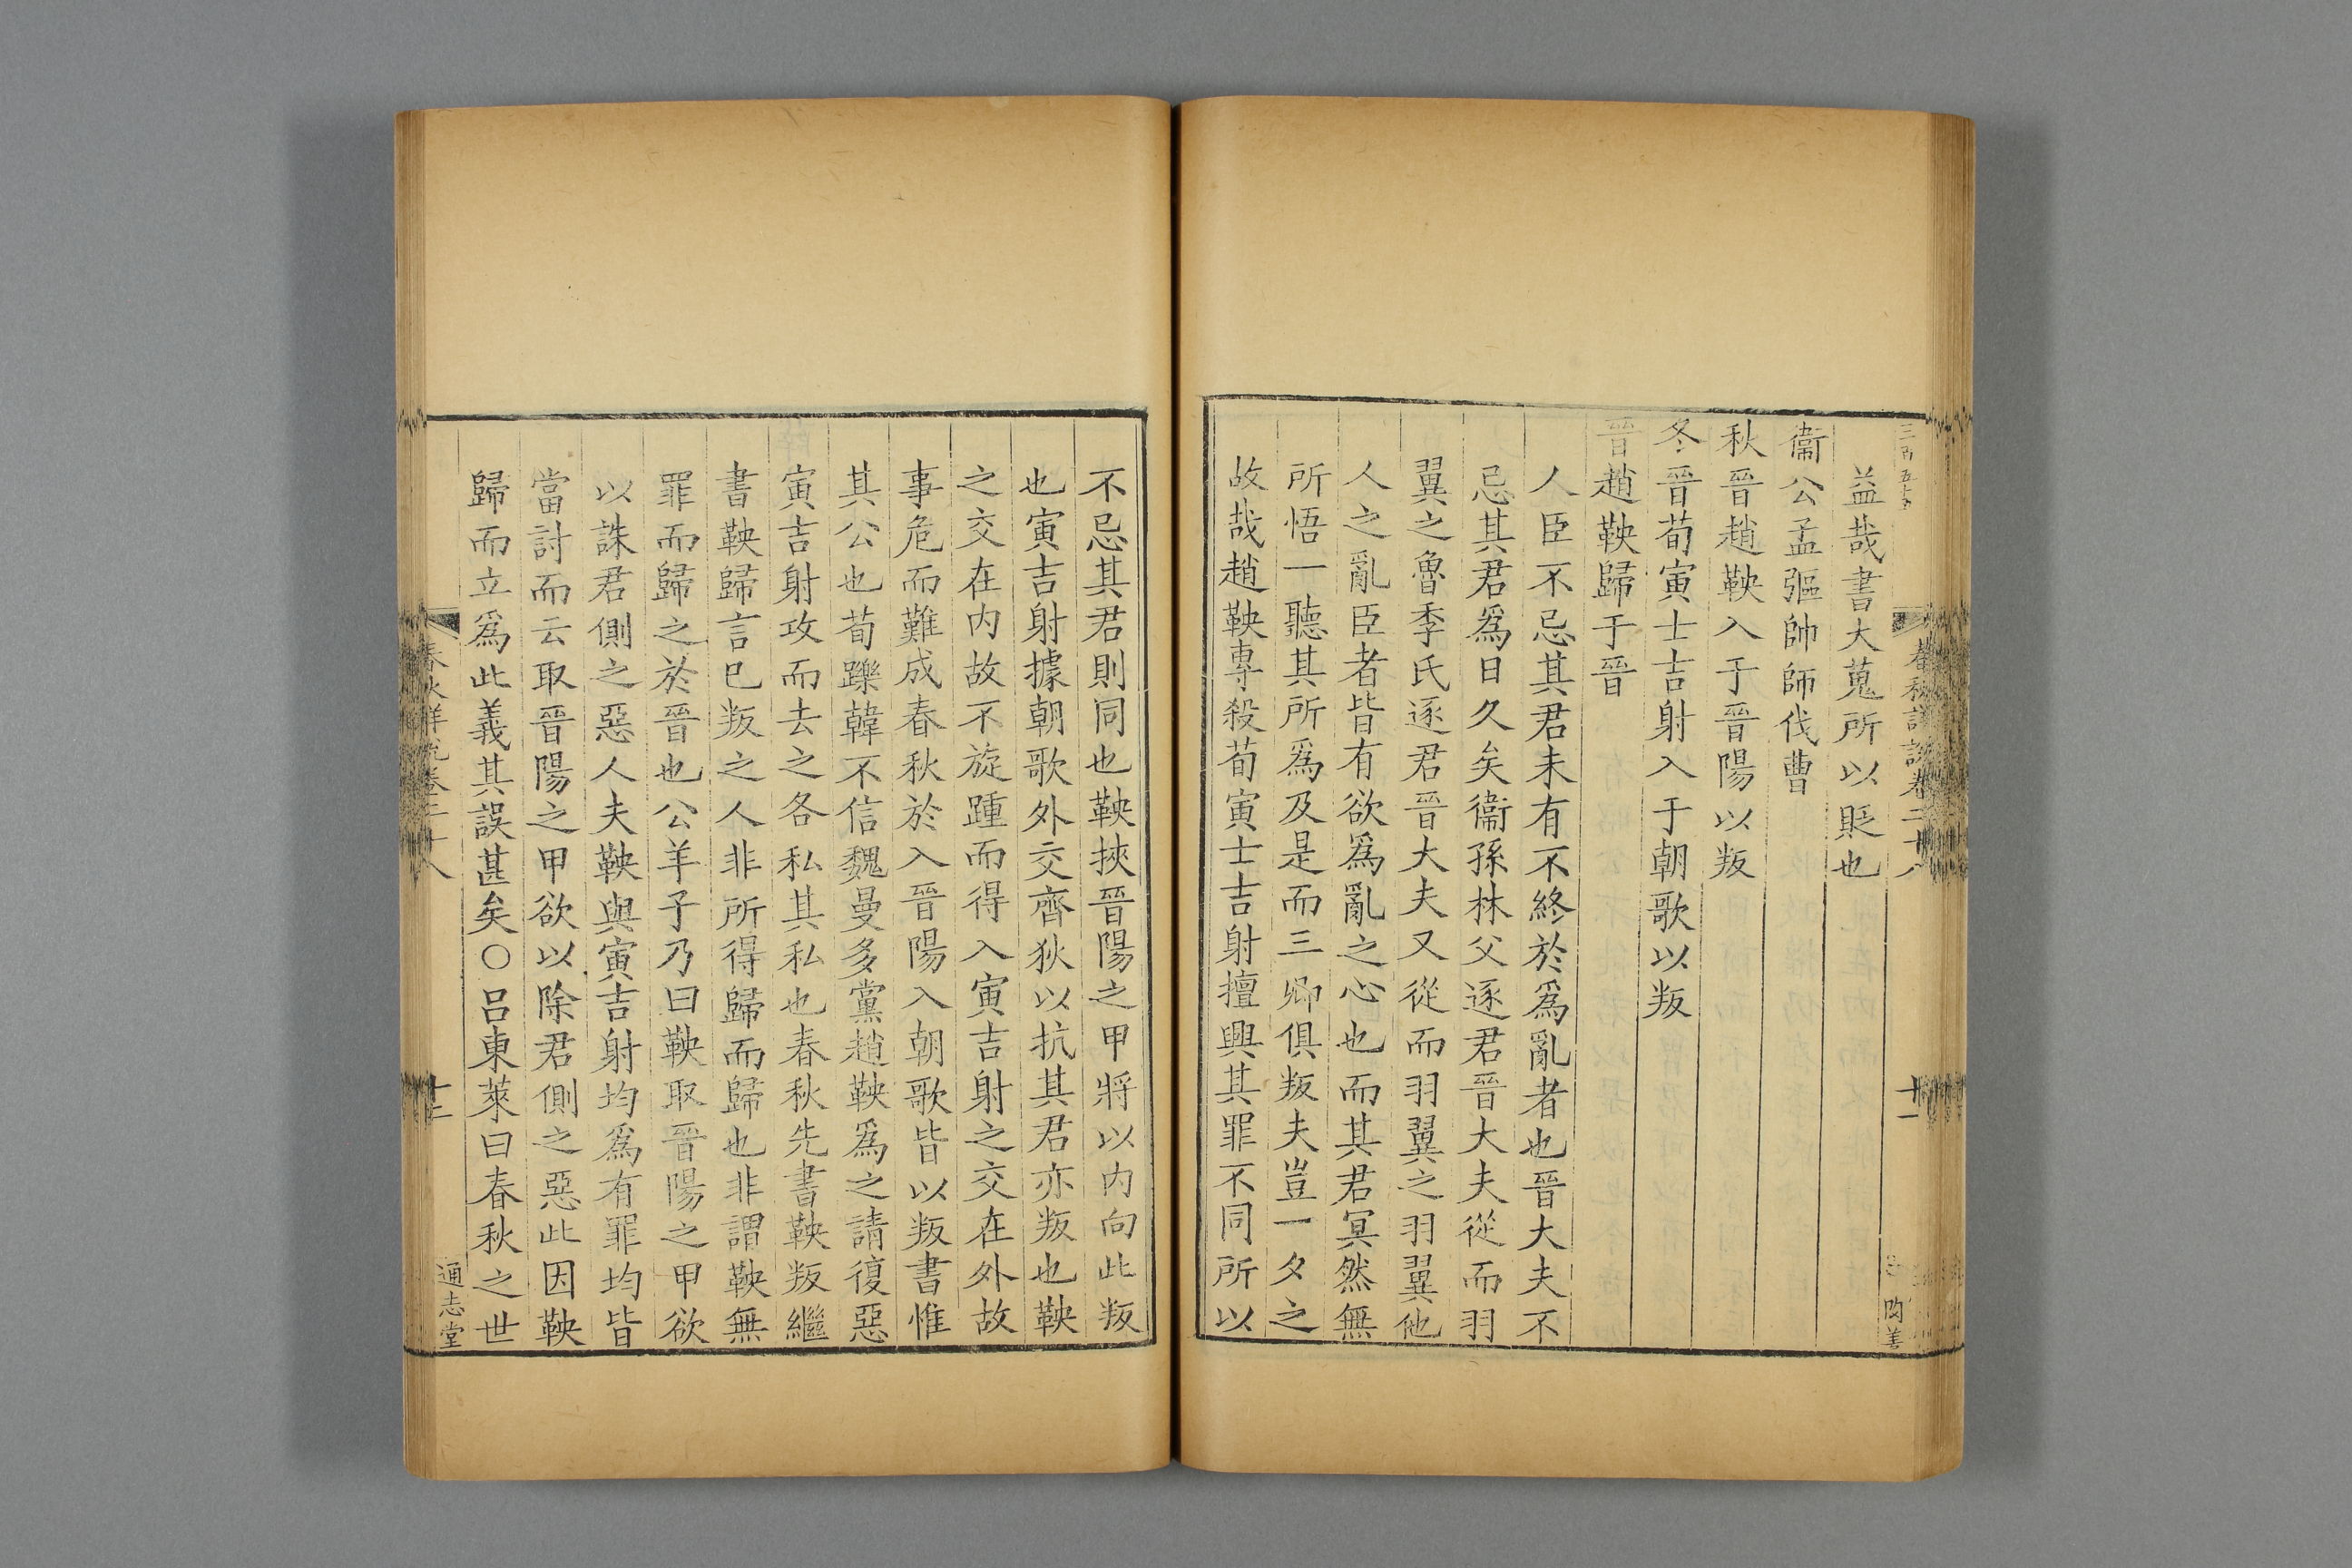 益哉書大蒐所以貶也
衞公孟彄帥師伐曹
秋晉趙鞅入于晉陽以叛
冬晉荀寅士吉射入于朝歌以叛
晉趙鞅歸于晉
人臣不忌其君未有不終於爲亂者也晉大夫不
忌其君爲日久矣衞孫林父逐君晉大夫從而羽
翼之魯季氏逐君晉大夫又從而羽翼之羽翼他
人之亂臣者皆有欲爲亂之心也而其君冥然無
所悟一聽其所爲及是而三卿俱叛夫豈一夕之
故哉趙鞅專殺荀寅士吉射擅興其罪不同所以
不忌其君則同也鞅挾晉陽之甲將以内向此叛
也寅吉射據朝歌外交齊狄以抗其君亦叛也鞅
之交在内故不旋踵而得入寅吉射之交在外故
事危而難成春秋於入晉陽入朝歌皆以叛書惟
其公也荀躒韓不信魏曼多黨趙鞅爲之請復惡
寅吉射攻而去之各私其私也春秋先書鞅叛繼
書鞅歸言已叛之人非所得歸而歸也非謂鞅無
罪而歸之於晉也公羊子乃曰鞅取晉陽之甲欲
以誅君側之惡人夫鞅與寅吉射均爲有罪均皆
當討而云取晉陽之甲欲以除君側之惡此因鞅
歸而立爲此義其誤甚矣○呂東萊曰春秋之世
春秋詳說卷二十八
十一
春秋詳說卷二十八
十二
通志堂